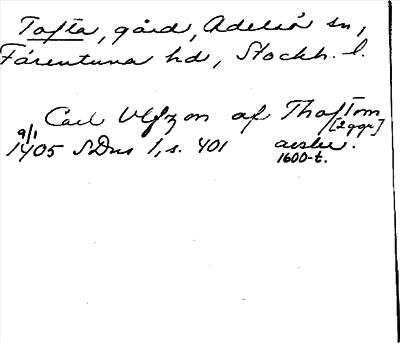 Tofta, gård, Adelsö sn,
Färentuna hd, Stockh. l.
Carl Ulfzon af Thoftom
[2 ggr]
9/1
1405 SDns 1, s. 401 avskr.
1600-t.